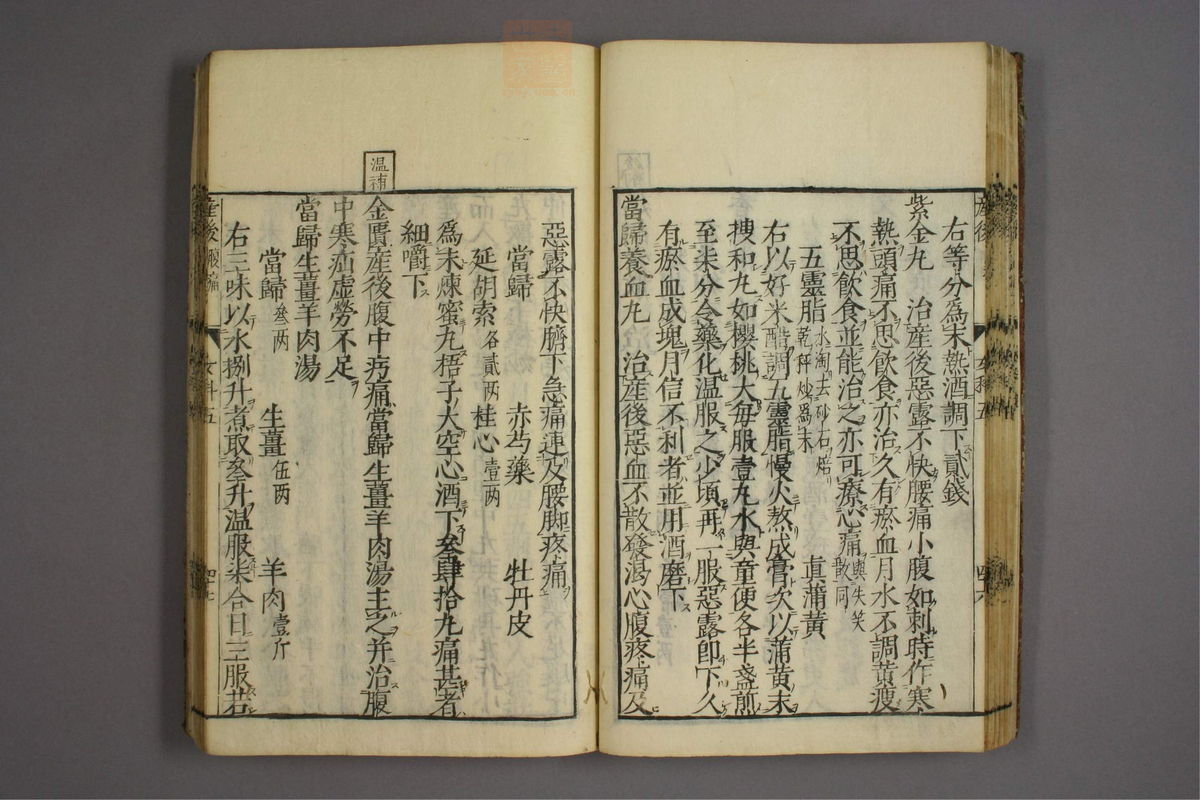 右等分爲末熱酒調下貳錢
紫金丸 治産後惡露不快腰痛小腹如刺時作寒
熱頭痛不思飲食亦治久有瘀血月水不調黃瘦
不思飲食並能治之亦可療心痛與失笑散同
五靈脂水淘去砂石焙乾秤炒爲末 眞蒲黃
右以好米醋調五靈脂慢火熬成膏次以蒲黃末
搜和丸如櫻桃大每服壹丸水與童便各半盞煎
至柒分令藥化温服之少頃再一服惡露卽下久
有瘀血成塊月信不利者並用酒磨下
當歸養血丸 治産後惡血不散發渴心腹疼痛及
産後
女科五
四十六
惡露不快臍下急痛連及腰脚疼痛
當歸 赤芍藥 牡丹皮
延胡索各貳两 桂心壹两
爲末煉蜜丸梧子大空心酒下叄肆拾丸痛甚者
細嚼下
温補
金匱産後腹中㽲痛當歸生薑羊肉湯主之并治腹
中寒疝虛勞不足
當歸生薑羊肉湯
當歸叄两 生薑伍两 羊肉壹斤
右三味以水捌升煮取叄升温服柒合日三服若
産後腹痛
女科五
四十七